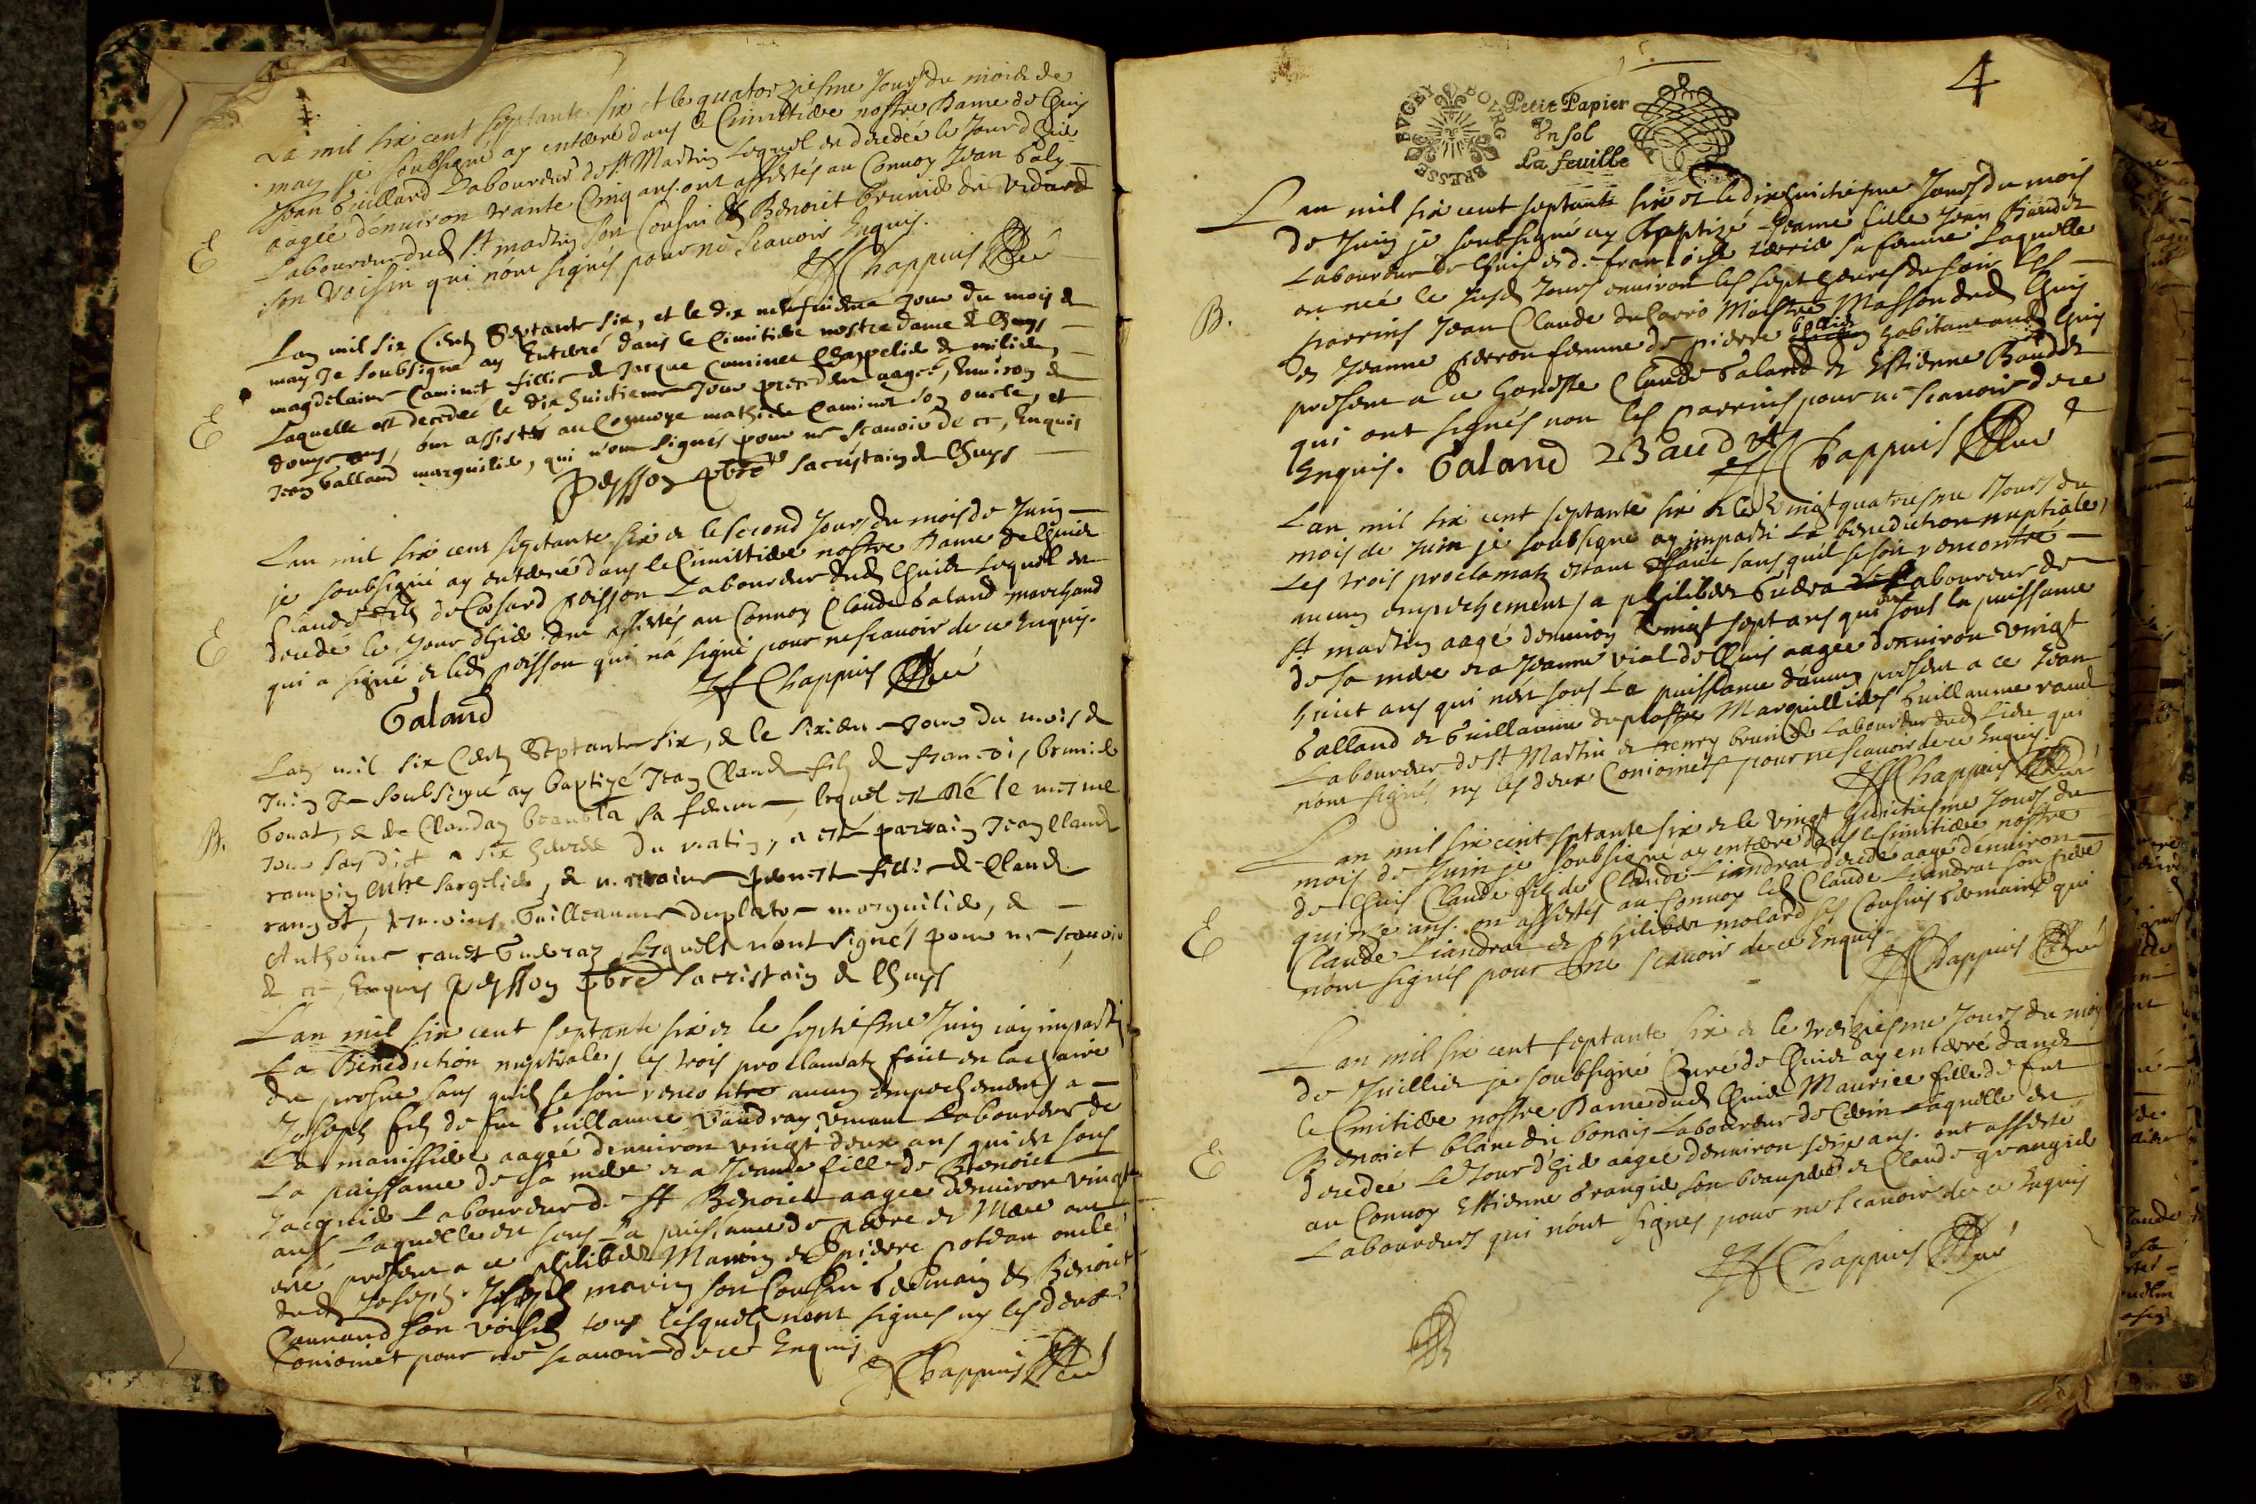 La mil six cent septante six et le quatorziesme Jour du mois de
may je soubsigné ay enterré dans le Cimitiere nostre Dame de Chuis
Jean Guillard Laboureur de st Martin lequel est decedé le Jour d'hier
aagée d'environ trante Cinq ans ont assistés au Convoy Jean Galy
E
Laboureur dud st martin son Cousin & Benoict brunier dit
son voisin qui n'ont signés pour ne scavoir Enquis.
Chappuis Curé
Lan mil six Cent Septante six, et le dix neufvieme Jour du mois de
may Je soubsigné ay Enterré dans le Cimitiere nostre dame de Chuys
magdelaine Caminet fillie de Jacque Caminet Chappelier de
E
Laquelle est decedée le dix huictieme Jour precedent aagée, Environ de
douze ans, ont assistés au Convoye mathieu Caminet son oncle, et
Jean Galland marguilier, qui n'ont signés pour ne scavoir de ce, Enquis
Peysson pbre sacristain de Chuys
Lan mil six cent septante six et le second Jour du mois de Juin
je soubsigné ay enterré dans le Cimittiere nostre Dame de Chuis
Claude fils de Cesard poisson Laboureur dud Chuis Lequel est
E
decedé le Jour d'hier ont assistés au Convoy Claude Galand marchand
qui a signé & led poisson qui n'a signé pour ne scavoir de ce Enquis.
Chappuis Curé
Galand
Lan mil six Cent Septante six, & le sixieme Jour du mois de
Juin Je soubsigné ay baptizé Jean Claude fils de francoi, brunier
Gonat, & de Claudaz sa femme, lequel est né le mesme
B.
Jour susdict a six heures du matin, a esté parrain Jean Claude
rampin, & marraine pernette fillie de Claude
tesmoins Guilleaume duplatre marguilier, &
Anthoine Guderaz Lesquels n'ont signés pour ne scavoir
de ce, Enquis Peysson pbre sacristain de Chuys
Lan mil six cent septante six et le septiesme Juin iay imparti
La Benediction nuptiale, les trois proclamatz faict en la chaire
du prosne sans quil se soit rencontre aucun empechement, a
Joseph fils de feu Guillaume Vaudray vivant Laboureur de
La manissiere aagée d'environ vingt deux ans qui est sous
La puissance de sa mere & a Jeanne fille de Benoict
Jacquier Laboureur de st Benoict aagee d'environ vingt
ans Laquelle est sous La puissance de pere et Mere ont
esté present a ce philibert Marin & pierre poteau oncle
dud Joseph. Joseph marin son Cousin Germain & Benoict
Cannard son voisin tous lesquels n'ont signes ny les deux
Conioinct pour ne scavoir de ce Enquis
Chappuis Curé
4
BVGEY BOVRG BRESSE
Petit Papier
Vn sol
La feuille
Lan mil six cent septante six et le dixhuictiesme Jour du mois
de Juin je soubsigné ay Baptizé Jeanne fille Jean Baudet
Laboureur de Chuis et de francoise sa femme Laquelle
B.
est née le susd Jour environ les sept heures du soir Les
parrins Jean Claude Maistre Masson dud Chuis
et Jeanne perron femme de pierre habitant aud Chuis
present a ce honeste Claude Galand & Estienne Baudet
qui ont signés non les parrins pour ne scavoir de ce
Enquis. Galand Baudet Chappuis Curé
Lan mil six cent septante six & le vingt quatriesme Jour du
mois de Juin je soubsigné ay imparti La benediction nuptiale,
Les trois proclamatz estant faict sans quil se soit rencontré
aucun empechement, a philibert Gudera Laboureur de
st martin aagé d'environ vingt sept ans qui est sous la puissance
de sa mere & a Jeanne vial de Chuis aagée d'environ vingt
huict ans qui n'est sous La puissance d'aucun present a ce Jean
Galland & Guillaume duplastre Marguilliers Guillaume
Laboureur de st Martin & henry brunier Laboureur dud Lieu qui
n'ont signés ny les deux Conioinets pour ne scavoir de ce Enquis.
Chappuis Curé
Lan mil six cent septante six & le vingt huictiesme Jour du
mois de Juin je soubsigné ay enterré dans le Cimitiere nostre
de Chuis Claude fils de Claude Liandrat decedé aagé d'environ
E
quinze ans. on assistés au Convoy led Claude Liandrat son frere
Claude Liandrat & philibert molard ses Cousins Germains qui
n'ont signés pour ne scavoir de ce Enquis
Chappuis Curé
Lan mil six cent septante six & le treiziesme Jour du mois
de Juillier je soubsigné Curé de Chuis ay enterré dans
le Cimitiere nostre Dame dud Chuis Maurice fille de feu
Benoict blanc dit bonais Laboureur de Laquelle est
E
decedée Le Jour d'hier aagée d'environ seize ans. ont assisté
au Convoy Estienne Grangier son beaupere & Claude grangier
Laboureurs qui n'ont signés pour ne scavoir de ce Enquis
Chappuis Curé